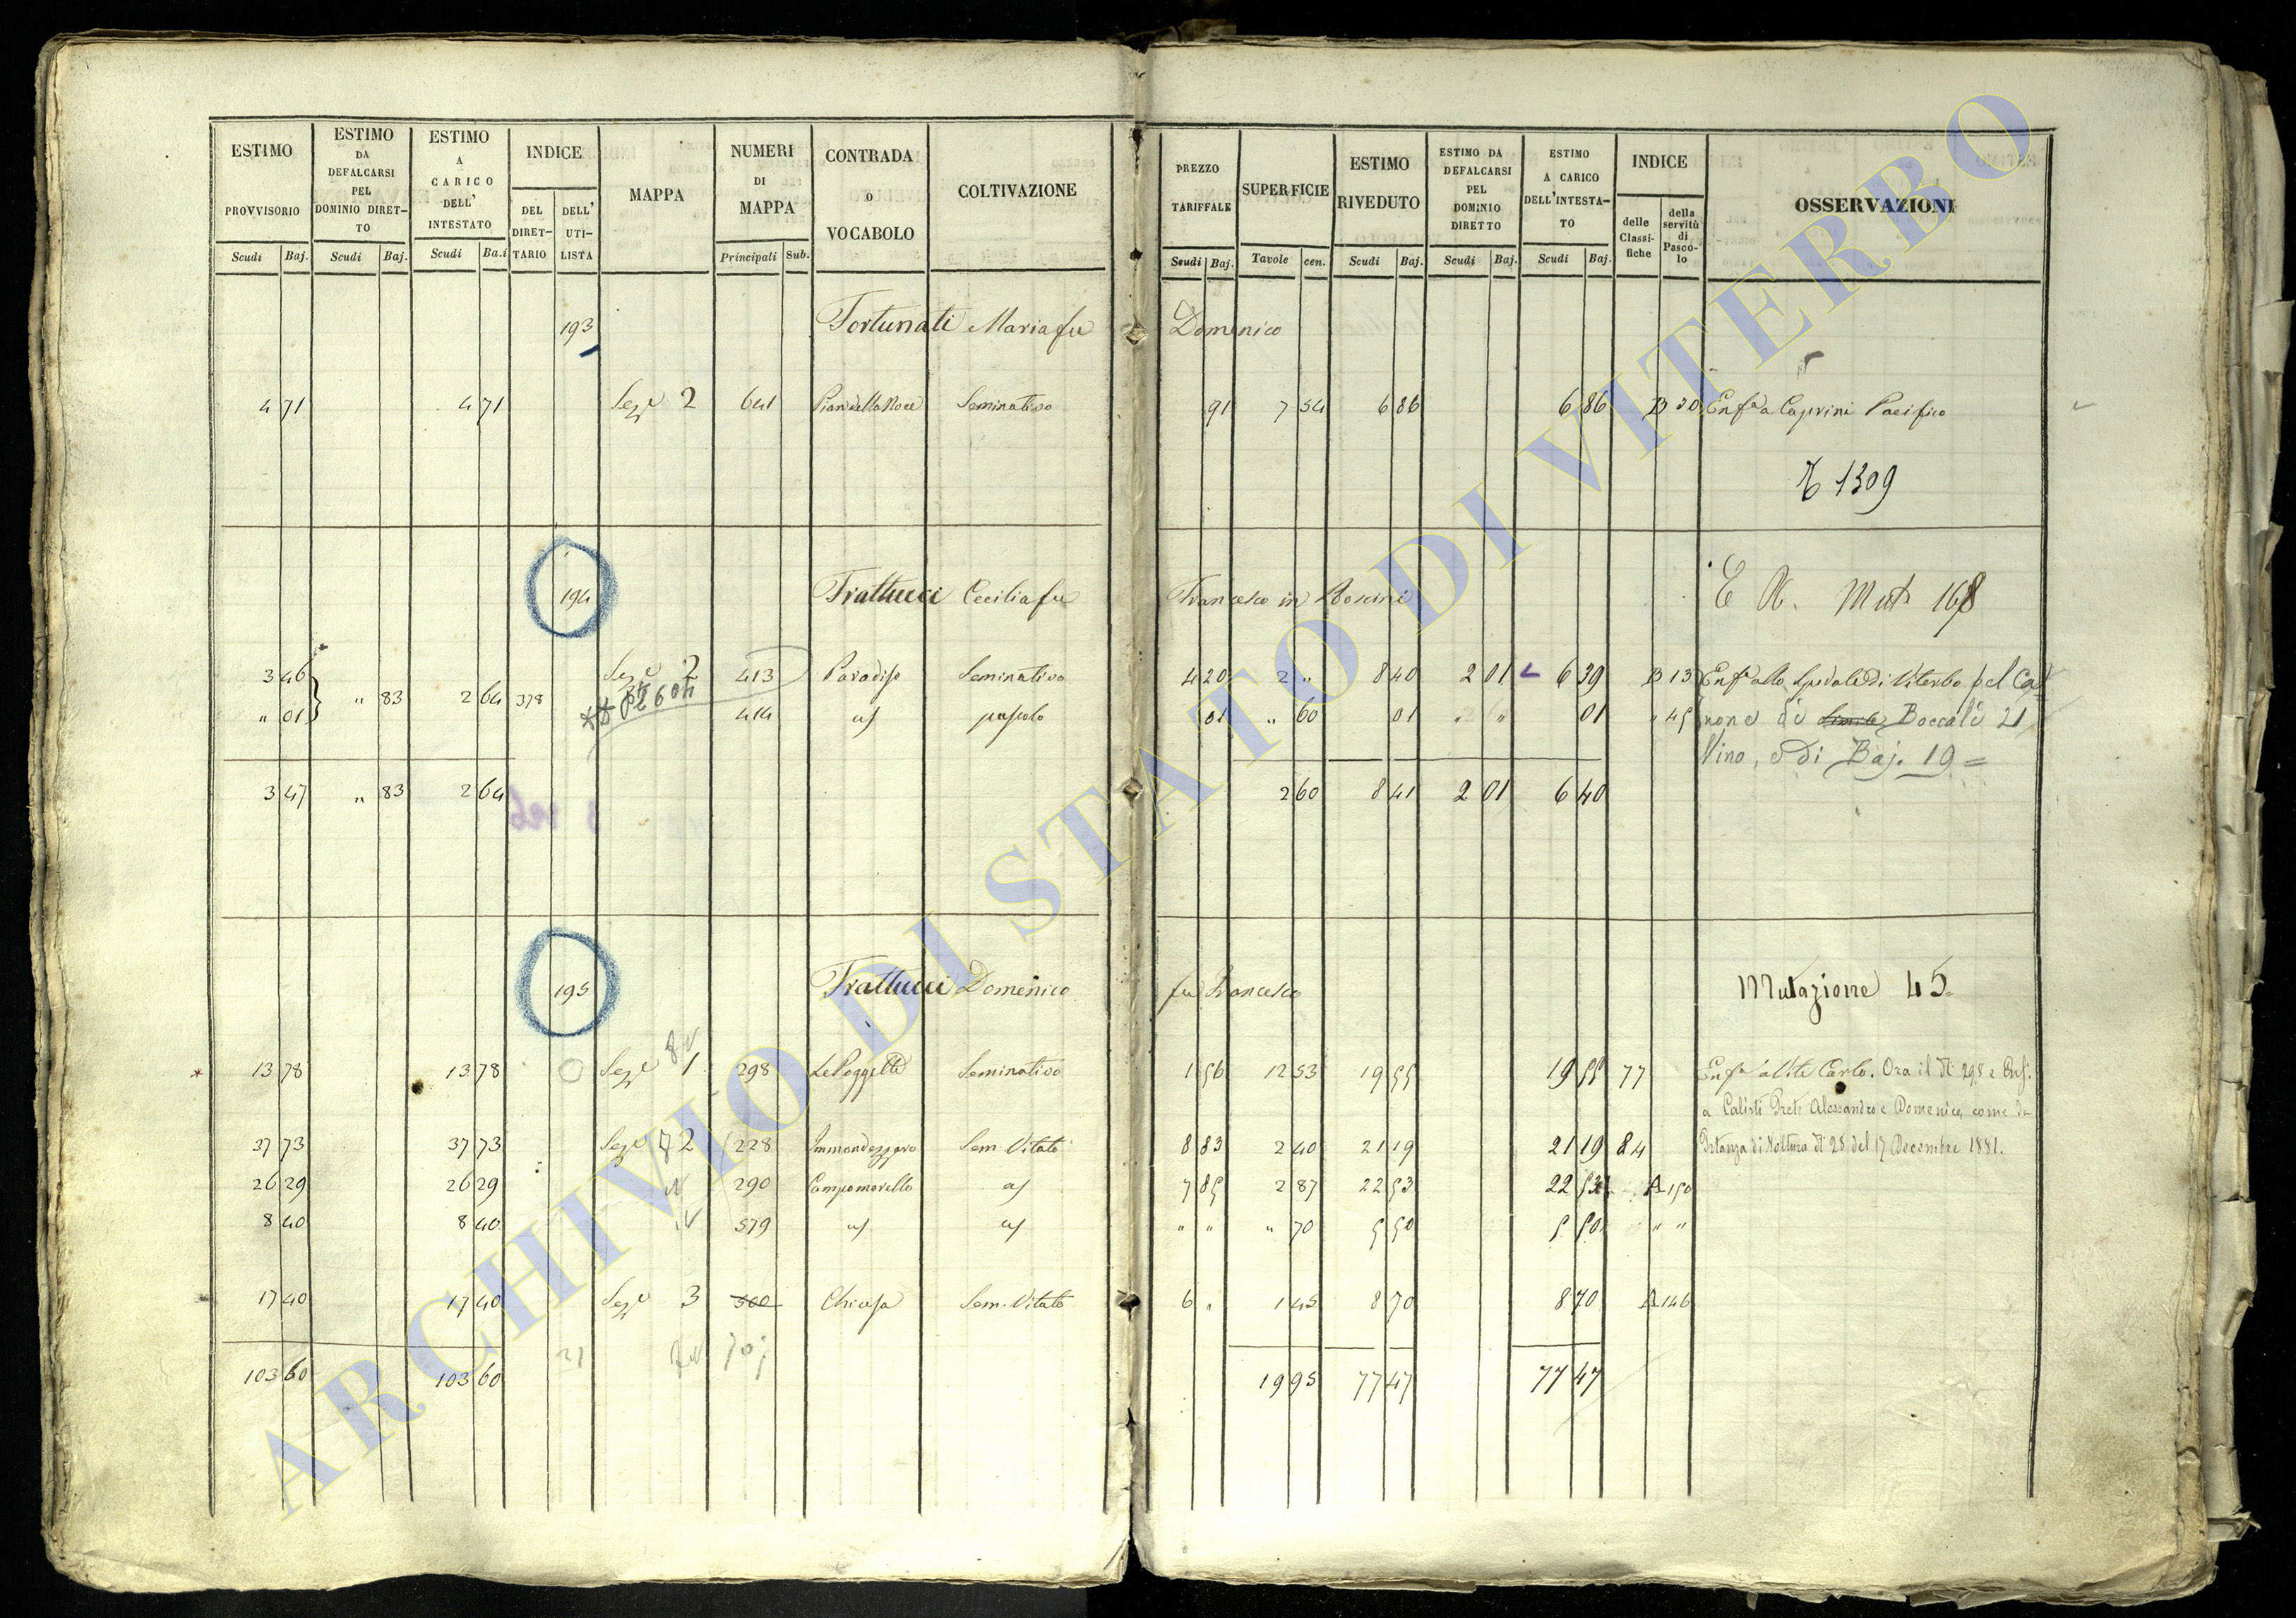 ESTIMO PROVVISORIO Scudi Baj.
ESTIMO DA DEFALCARSI PEL DOMINIO DIRET-TO Scudi Baj.
ESTIMO A CARICO DELL' INTESTATO Scudi Ba.i
INDICE DEL DIRET-TARIO DELL' UTI-LISTA
MAPPA
NUMERI DI MAPPA Principali Sub.
CONTRADA O VOCABOLO
COLTIVAZIONE
PREZZO TARIFFALE Scudi Baj.
SUPERFICIE Tavole cen.
ESTIMO RIVEDUTO Scudi Baj.
ESTIMO DA DEFALCARSI PEL DOMINIO DIRETTO Scudi Baj.
ESTIMO A CARICO DELL'INTESTA-TO Scudi Baj.
INDICE delle Classi-fiche della servitù di Pasco-lo
OSSERVAZIONI
193 Fortunati Maria fu Domenico
4 71 4 71 Sez.e 2 641 Pian della Noce Seminativo 91 7 54 6 86 6 86 B 30 Enf.a a Caprini Pacifico
1309
194 Frattucci Cecilia fu Francesco in Boscini E N. Mut. 168
3 46 " 83 2 64 378 Sez.e 2 413 Paradiso Seminativo 4 20 2 " 8 40 2 01 6 39 B 13 Enf.a allo Spedale di Viterbo pel Ca
" 01 414 as pascolo 01 " 60 01 " " 01 " 45 none di Boccali 21
Vino, e di Baj. 19 =
3 47 " 83 2 64 2 60 8 41 2 01 6 40
195 Frattucci Domenico fu Francesco Mutazione 45
13 78 13 78 Sez.e 1 298 Le Poggette Seminativo 1 56 12 53 19 55 19 55 77 Enf.a Carlo. Ora il N. 298 è Enf.
a Calisti Alessandro e Domenico, come da
37 73 37 73 Sez.e 2 228 Immondezzaro Sem. Vitato 8 83 2 40 21 19 21 19 84 Istanza di Voltura N. 28 del 17 Decembre 1881.
26 29 26 29 290 Campomorello as 7 85 2 87 22 53 22 53 A 150
8 40 8 40 579 as as " " " 70 5 50 5 50 " "
17 40 17 40 Sez.e 3 300 Chiusa Sem. Vitato 6 " 1 45 8 70 8 70 A 146
103 60 103 60 19 95 77 47 77 47
ARCHIVIO DI STATO DI VITERBO